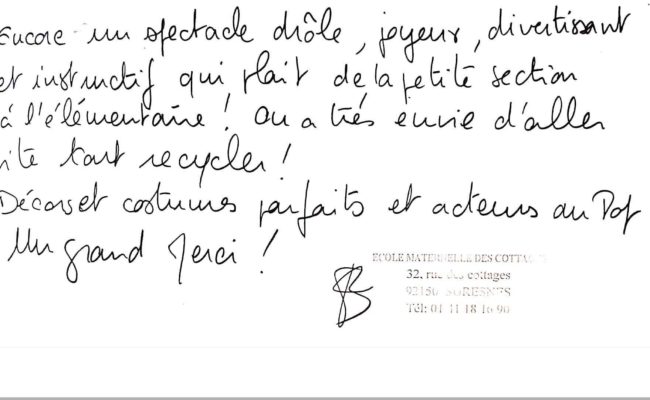 Encore un spectacle drôle, joyeux, divertissant
et instructif qui plait de la petite section
à l'élémentaire! On a très envie d'aller
vite tout recycler!
Décors et costumes parfaits et acteurs au Top
Un grand Merci!
ECOLE MATERNELLE DES COTTAGES
32, rue des cottages
92150 SURESNES
Tél: 01 41 18 16 90